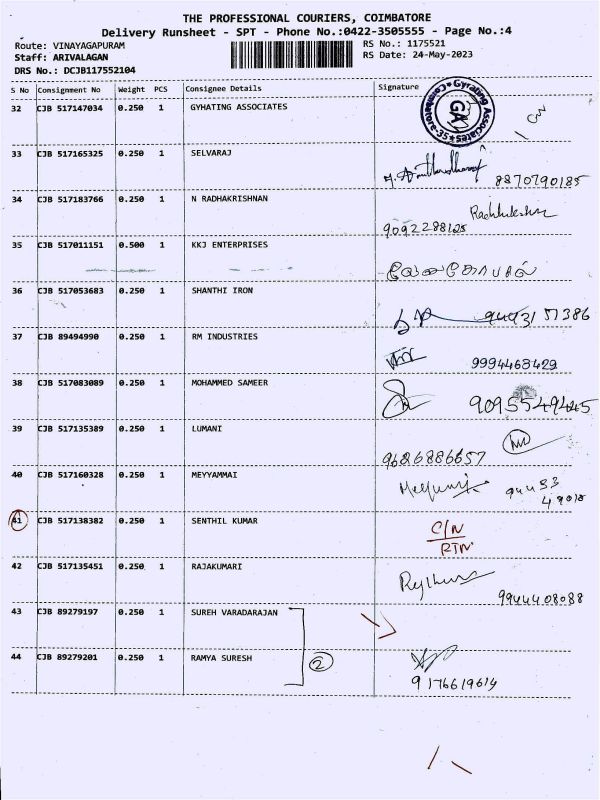 THE PROFESSIONAL COURIERS, COIMBATORE
Delivery Runsheet - SPT - Phone No.:0422-3505555 - Page No.:4
Route: VINAYAGAPURAM RS No.: 1175521
Staff: ARIVALAGAN RS Date: 24-May-2023
DRS No.: DCJB117552104
S No Consignment No Weight PCS Consignee Details Signature
32 CJB 517147034 0.250 1 GYHATING ASSOCIATES
Gyrating Associates Coimbatore-35 GA
33 CJB 517165325 0.250 1 SELVARAJ
8870790185
34 CJB 517183766 0.250 1 N RADHAKRISHNAN
9092288125
35 CJB 517011151 0.500 1 KKJ ENTERPRISES
வேணுகோபால்
36 CJB 517053683 0.250 1 SHANTHI IRON
9443157386
37 CJB 89494990 0.250 1 RM INDUSTRIES
9994468429
38 CJB 517083089 0.250 1 MOHAMMED SAMEER
9095549445
39 CJB 517135389 0.250 1 LUMANI
9686886657
40 CJB 517160328 0.250 1 MEYYAMMAI
41 CJB 517138382 0.250 1 SENTHIL KUMAR
C/N
RTN
42 CJB 517135451 0.250 1 RAJAKUMARI
9944408088
43 CJB 89279197 0.250 1 SUREH VARADARAJAN
44 CJB 89279201 0.250 1 RAMYA SURESH
2
9176619614